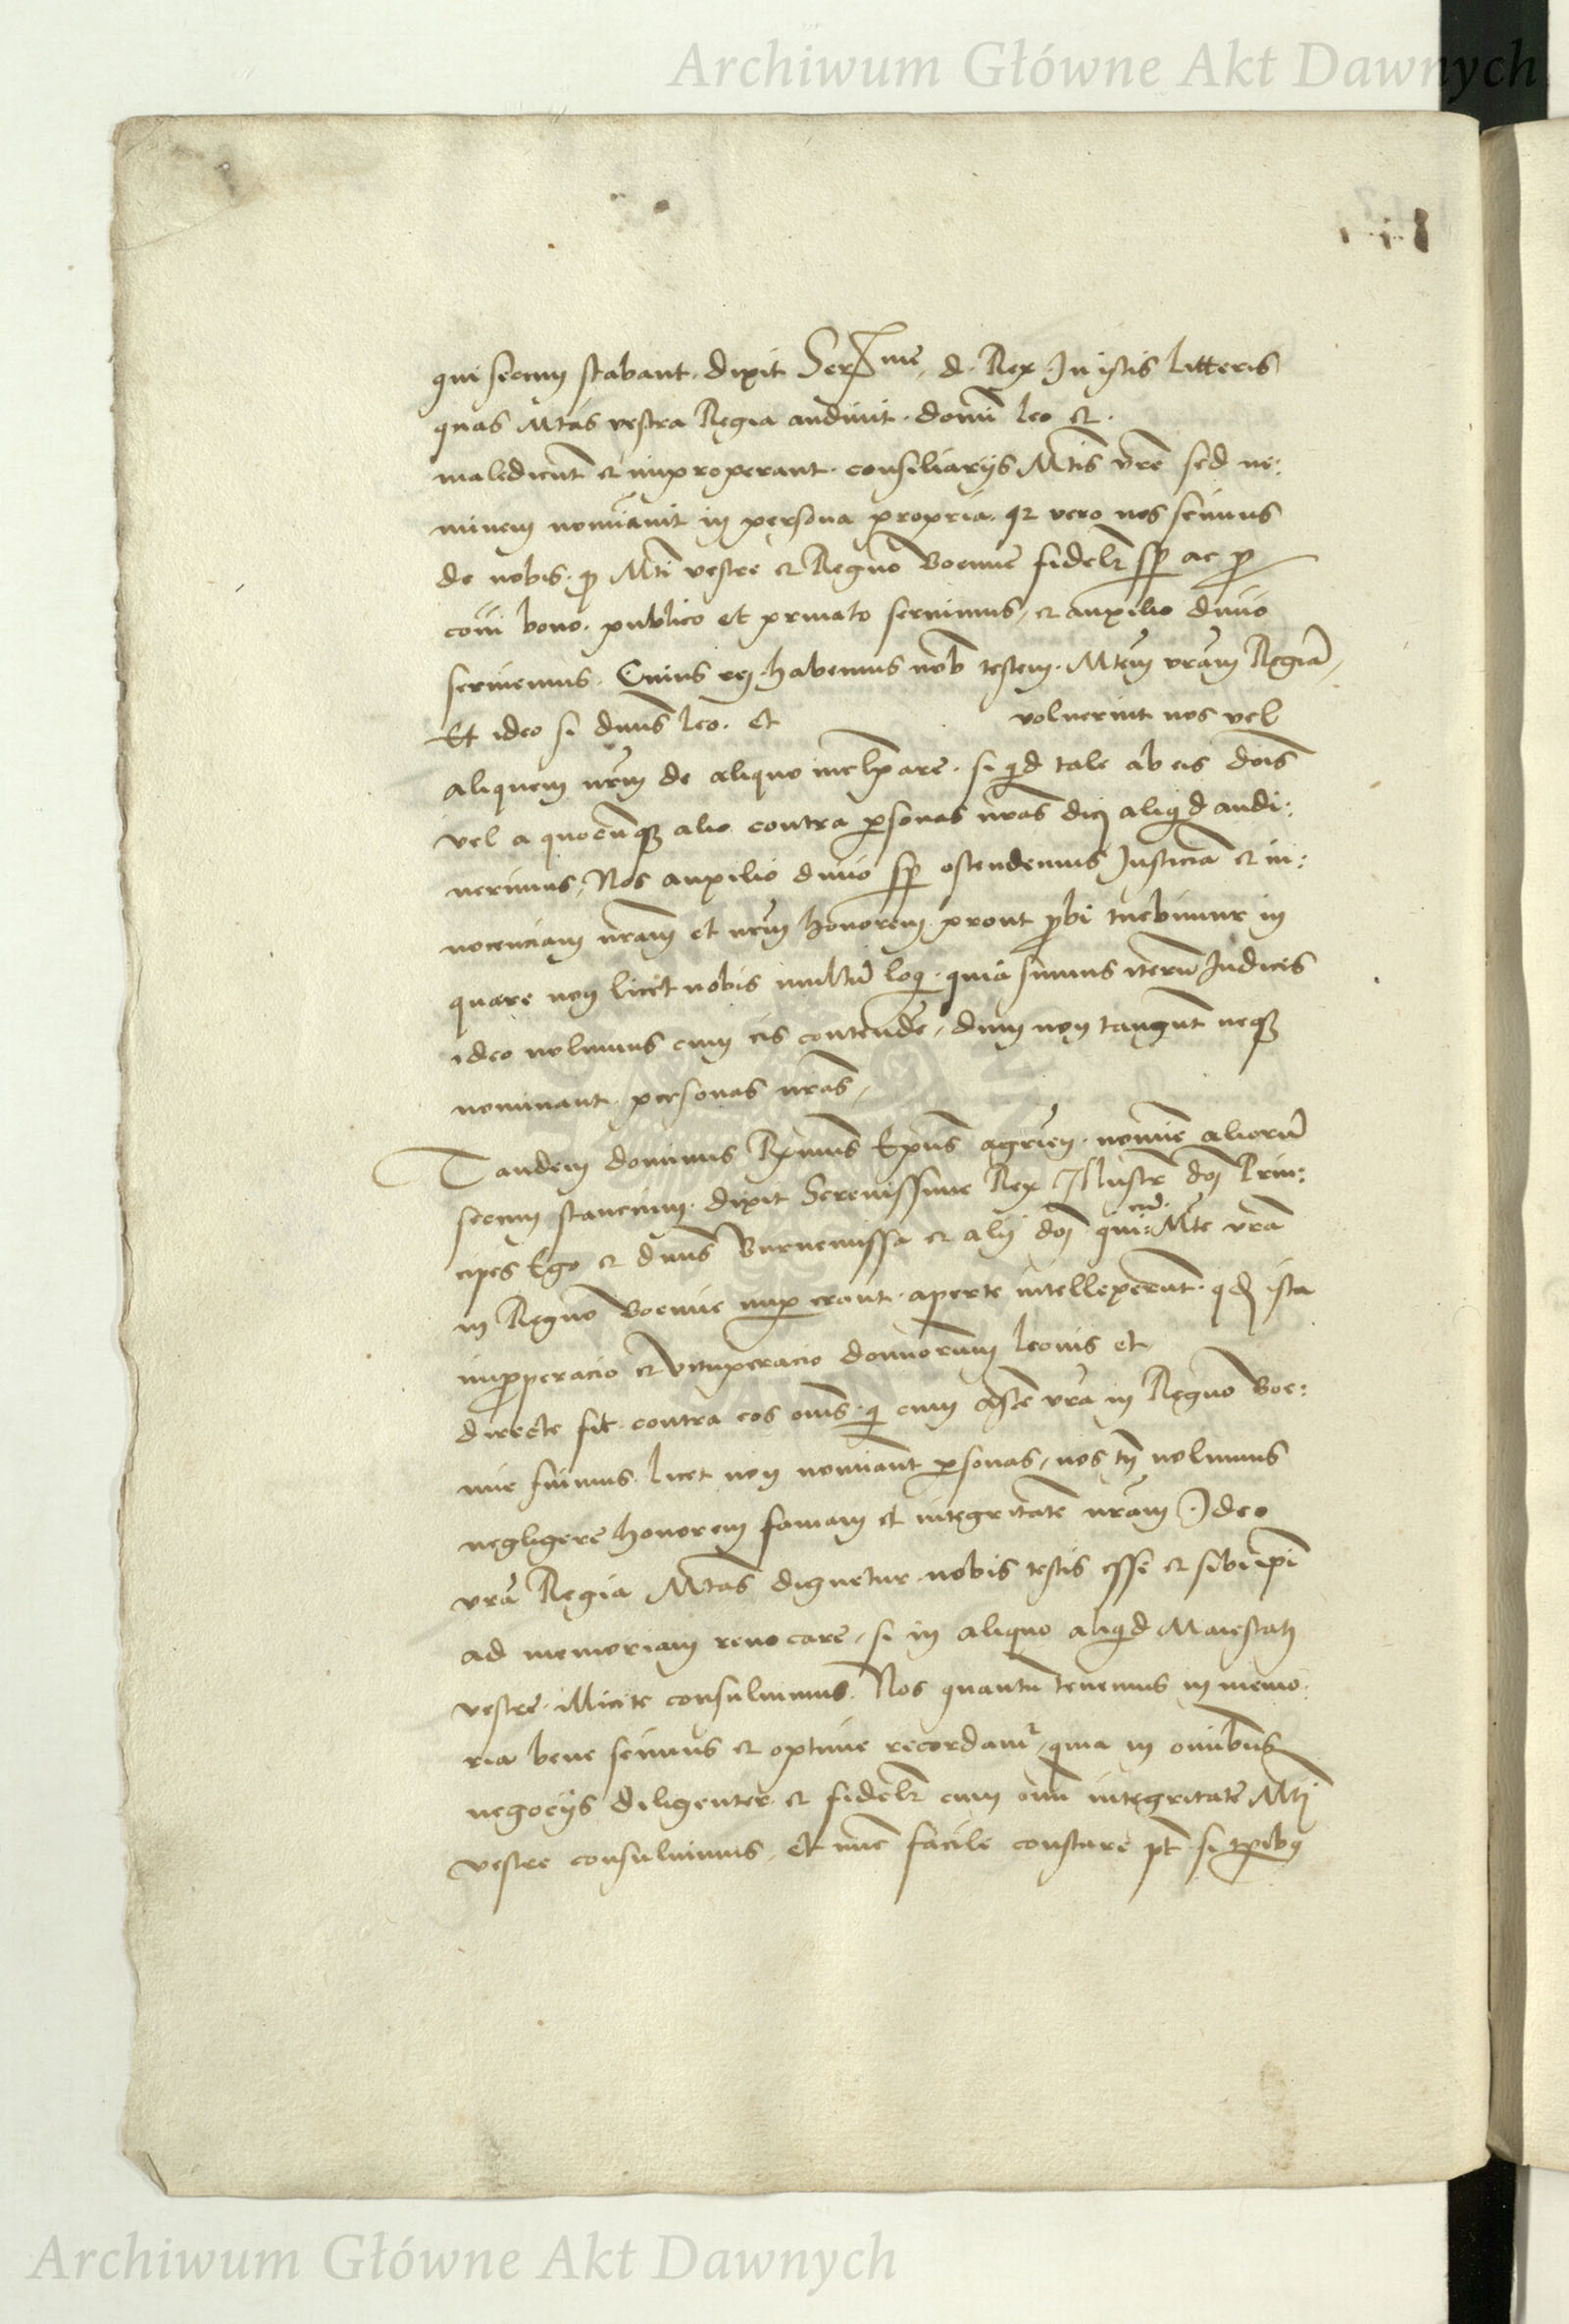 Archiwum Główne Akt Dawnych
qui secum stabant. dixit Ser^me. d. Rex In istis litteris
quas Mtas vestra Regia audiuit. domi leo et.
maledicūt et improperant. consiliarijs Mtis vre sed ne:
minem nomīauit in persona propria. qr vero nos scimus
de nobis. qp Mti vestre et Regno Boemie fidelr sp ac p
cōi bono. publico et priuato seruimus, et auxilio diuīo
seruiemus. Cuius rei habemus nob testem. Mtem vram Regiā,
Et ideo si dnus leo. et voluerint nos vel
aliquem nrm de aliquo inculpare. si qd tale ab eis dois
vel a quocūqz alio contra psonas nras dici aliqd audi:
uerimus, Nos auxilio diuīo sp ostendemus Justiciā et in:
nocenciam nram et nrm honorem prout pbi tuebimur in
quare non licet nobis multū loqi. quia sumus iterū Judices
ideo nolumus cum eis contendē, dum non tangūt neqz
nominant personas nras,
Tandem dominus Rx̄mus Epūs agrien. nomīe aliorū
secum stancium. dixit Serenissime Rex Illustre doi Prin:
cipes Ego et dnus Burnemissa et alij doi qui cū Mte vrā
in Regno Boemie nup erant. aperte intellexerūt. qd ista
impperacio et vituperacio dominorum leonis et
directe sit. contra eos omīs. qi cum Mte vra in Regno Boe:
mie fuimus. licet non nomīant psonas, nos tn nolumus
negligere honorem famam et integritatē nram Ideo
vrā Regia Mtas dignetur nobis testis esse et sibiipi
ad memoriam reuocare, si in aliquo aliqd Maiestati
vestre. illicite consuluimus. Nos quantū tenemus in memo:
ria bene scimus et optime recordamr, quia in omībus
negocijs diligenter et fidelr cum omī integritate Mti
vestre consuluimus, et nūc facile constare pt si tpibus
Archiwum Główne Akt Dawnych